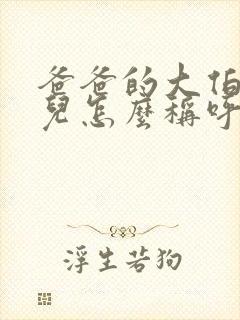 爸爸的大伯
兒怎麼稱呼
浮生若狗